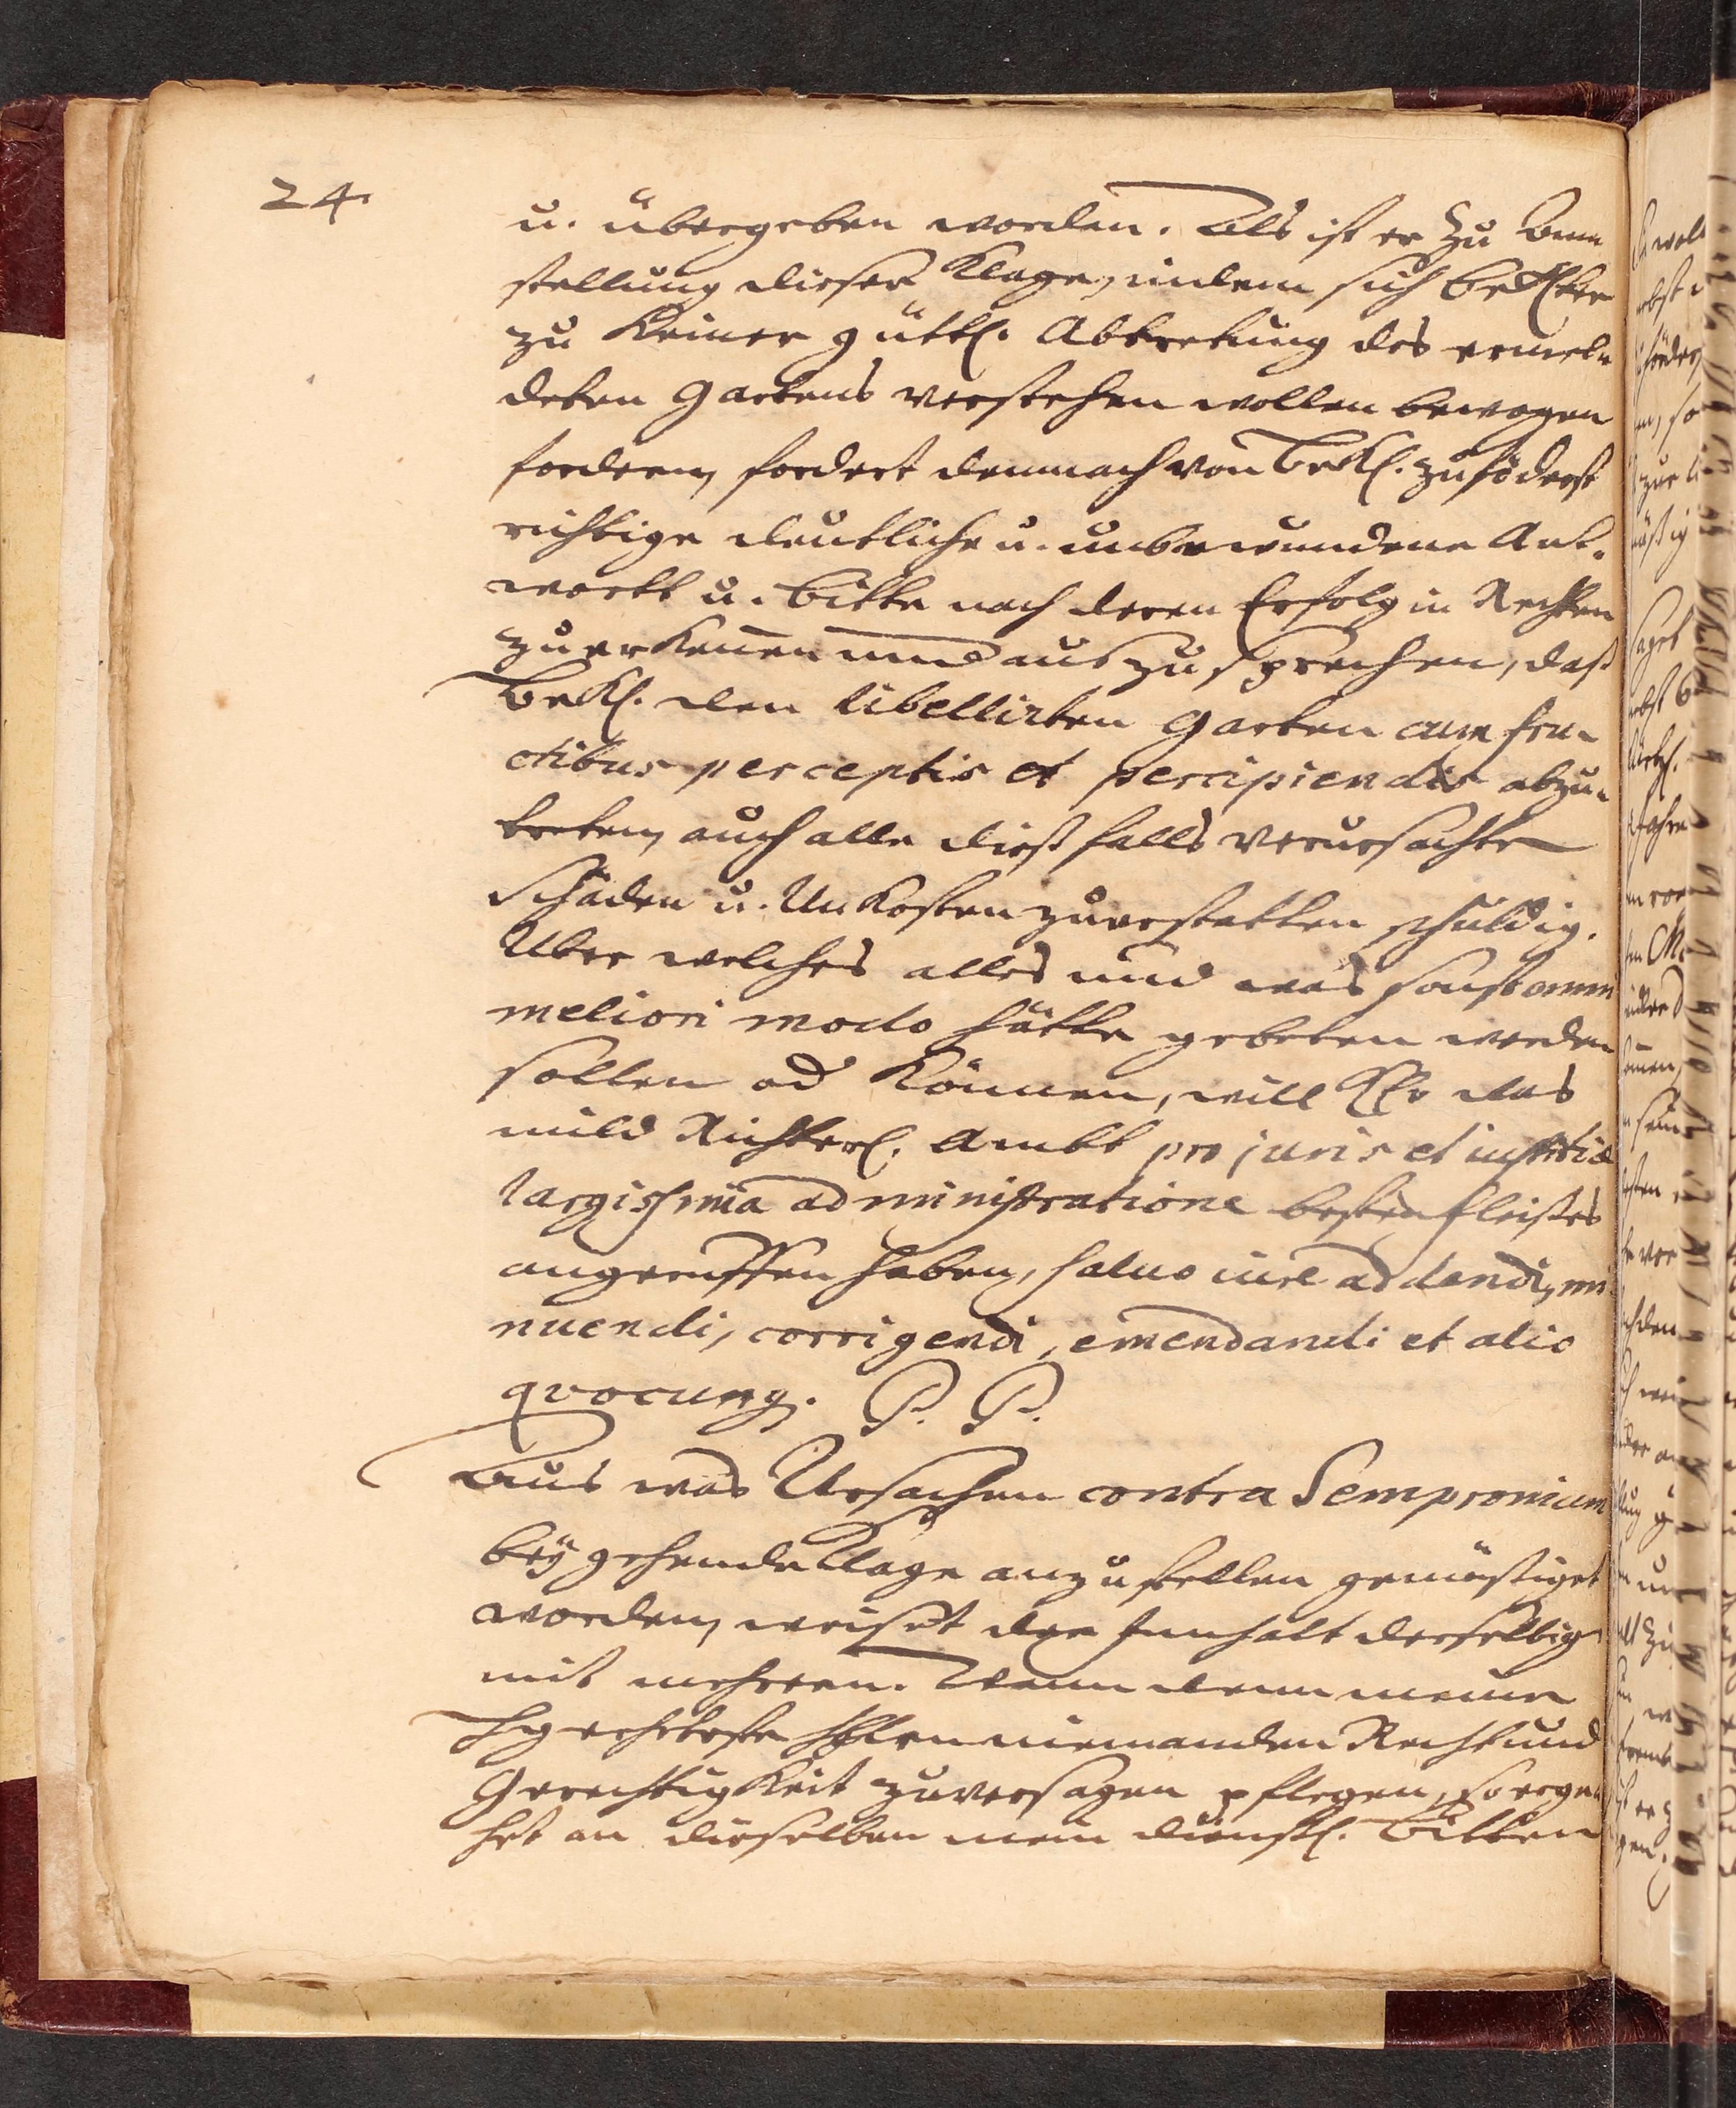 24.
u. übergeben worden. Als ist er zu Ann
stellung dieser Klage, indem sich Beklter
zu keiner gütl. Abtretung des ermel-
deten Gartens verstehen wollen bewogen
fordern, fordert demnach von Bekl. zuföderst
richtige deutliche u. unbewundene Ant-
wortt u. bitte nach deren Erfolg in Rechten
zu erkennen und auszusprechen, daß
Bekl. den libellirten Garten cum fru-
ctibus perceptis et percipiendis abzu-
tretten, auch alle dießfalls verursachte
Schäden u. Unkosten zuerstatten schuldig.
Uber welches alles und was sonst omni
meliori modo hätte gebeten werden
sollen od können, will Klr das
mild Richterl. Ambt pro juris et iustitiæ
largissima administratione besten fleißes
angeruffen haben, salvo iure addendi, mi-
nuendi, corrigendi, emendandi et alio
qvocunq. P. P.
Aus was Ursachen contra Sempronium
beÿgehende Klage anzustellen gemüssiget
worden, weiset der Innhalt derselbigen
mit mehrern. Wann denn meine
hgeehrteste HHren niemanden Recht und
Gerechtigkeit zuversagen pflegen, so erge-
het an dieselben mein dienstl. Bitten